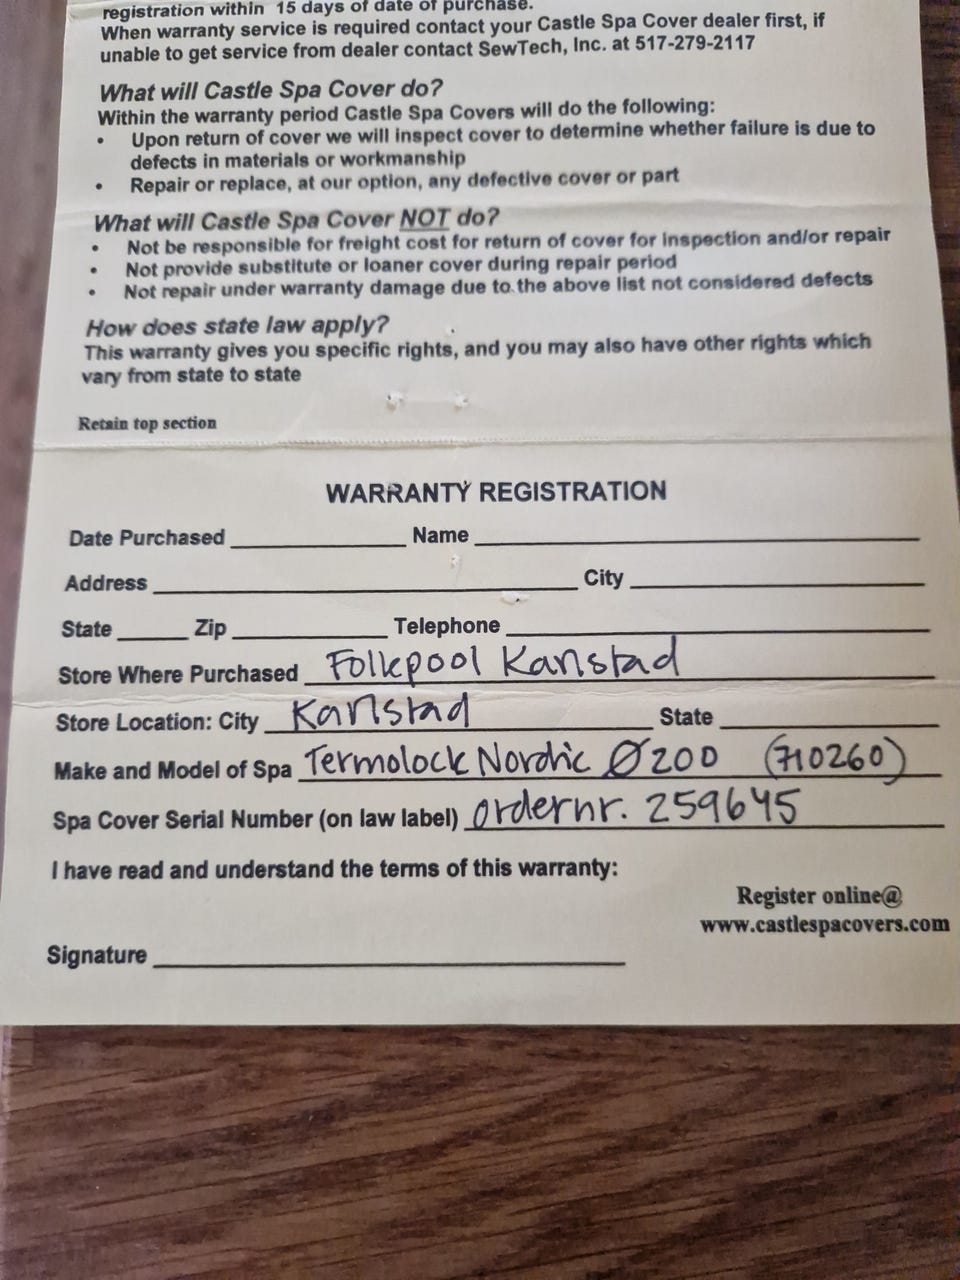 registration within 15 days of date of purchase.
When warranty service is required contact your Castle Spa Cover dealer first, if
unable to get service from dealer contact SewTech, Inc. at 517-279-2117
What will Castle Spa Cover do?
Within the warranty period Castle Spa Covers will do the following:
• Upon return of cover we will inspect cover to determine whether failure is due to
defects in materials or workmanship
• Repair or replace, at our option, any defective cover or part
What will Castle Spa Cover NOT do?
• Not be responsible for freight cost for return of cover for inspection and/or repair
• Not provide substitute or loaner cover during repair period
• Not repair under warranty damage due to the above list not considered defects
How does state law apply?
This warranty gives you specific rights, and you may also have other rights which
vary from state to state
Retain top section
WARRANTY REGISTRATION
Date Purchased Name
Address City
State Zip Telephone
Store Where Purchased Folkpool Karlstad
Store Location: City Karlstad State
Make and Model of Spa Termolock Nordic Ø200 (710260)
Spa Cover Serial Number (on law label) ordernr. 259645
I have read and understand the terms of this warranty:
Register online@
www.castlespacovers.com
Signature